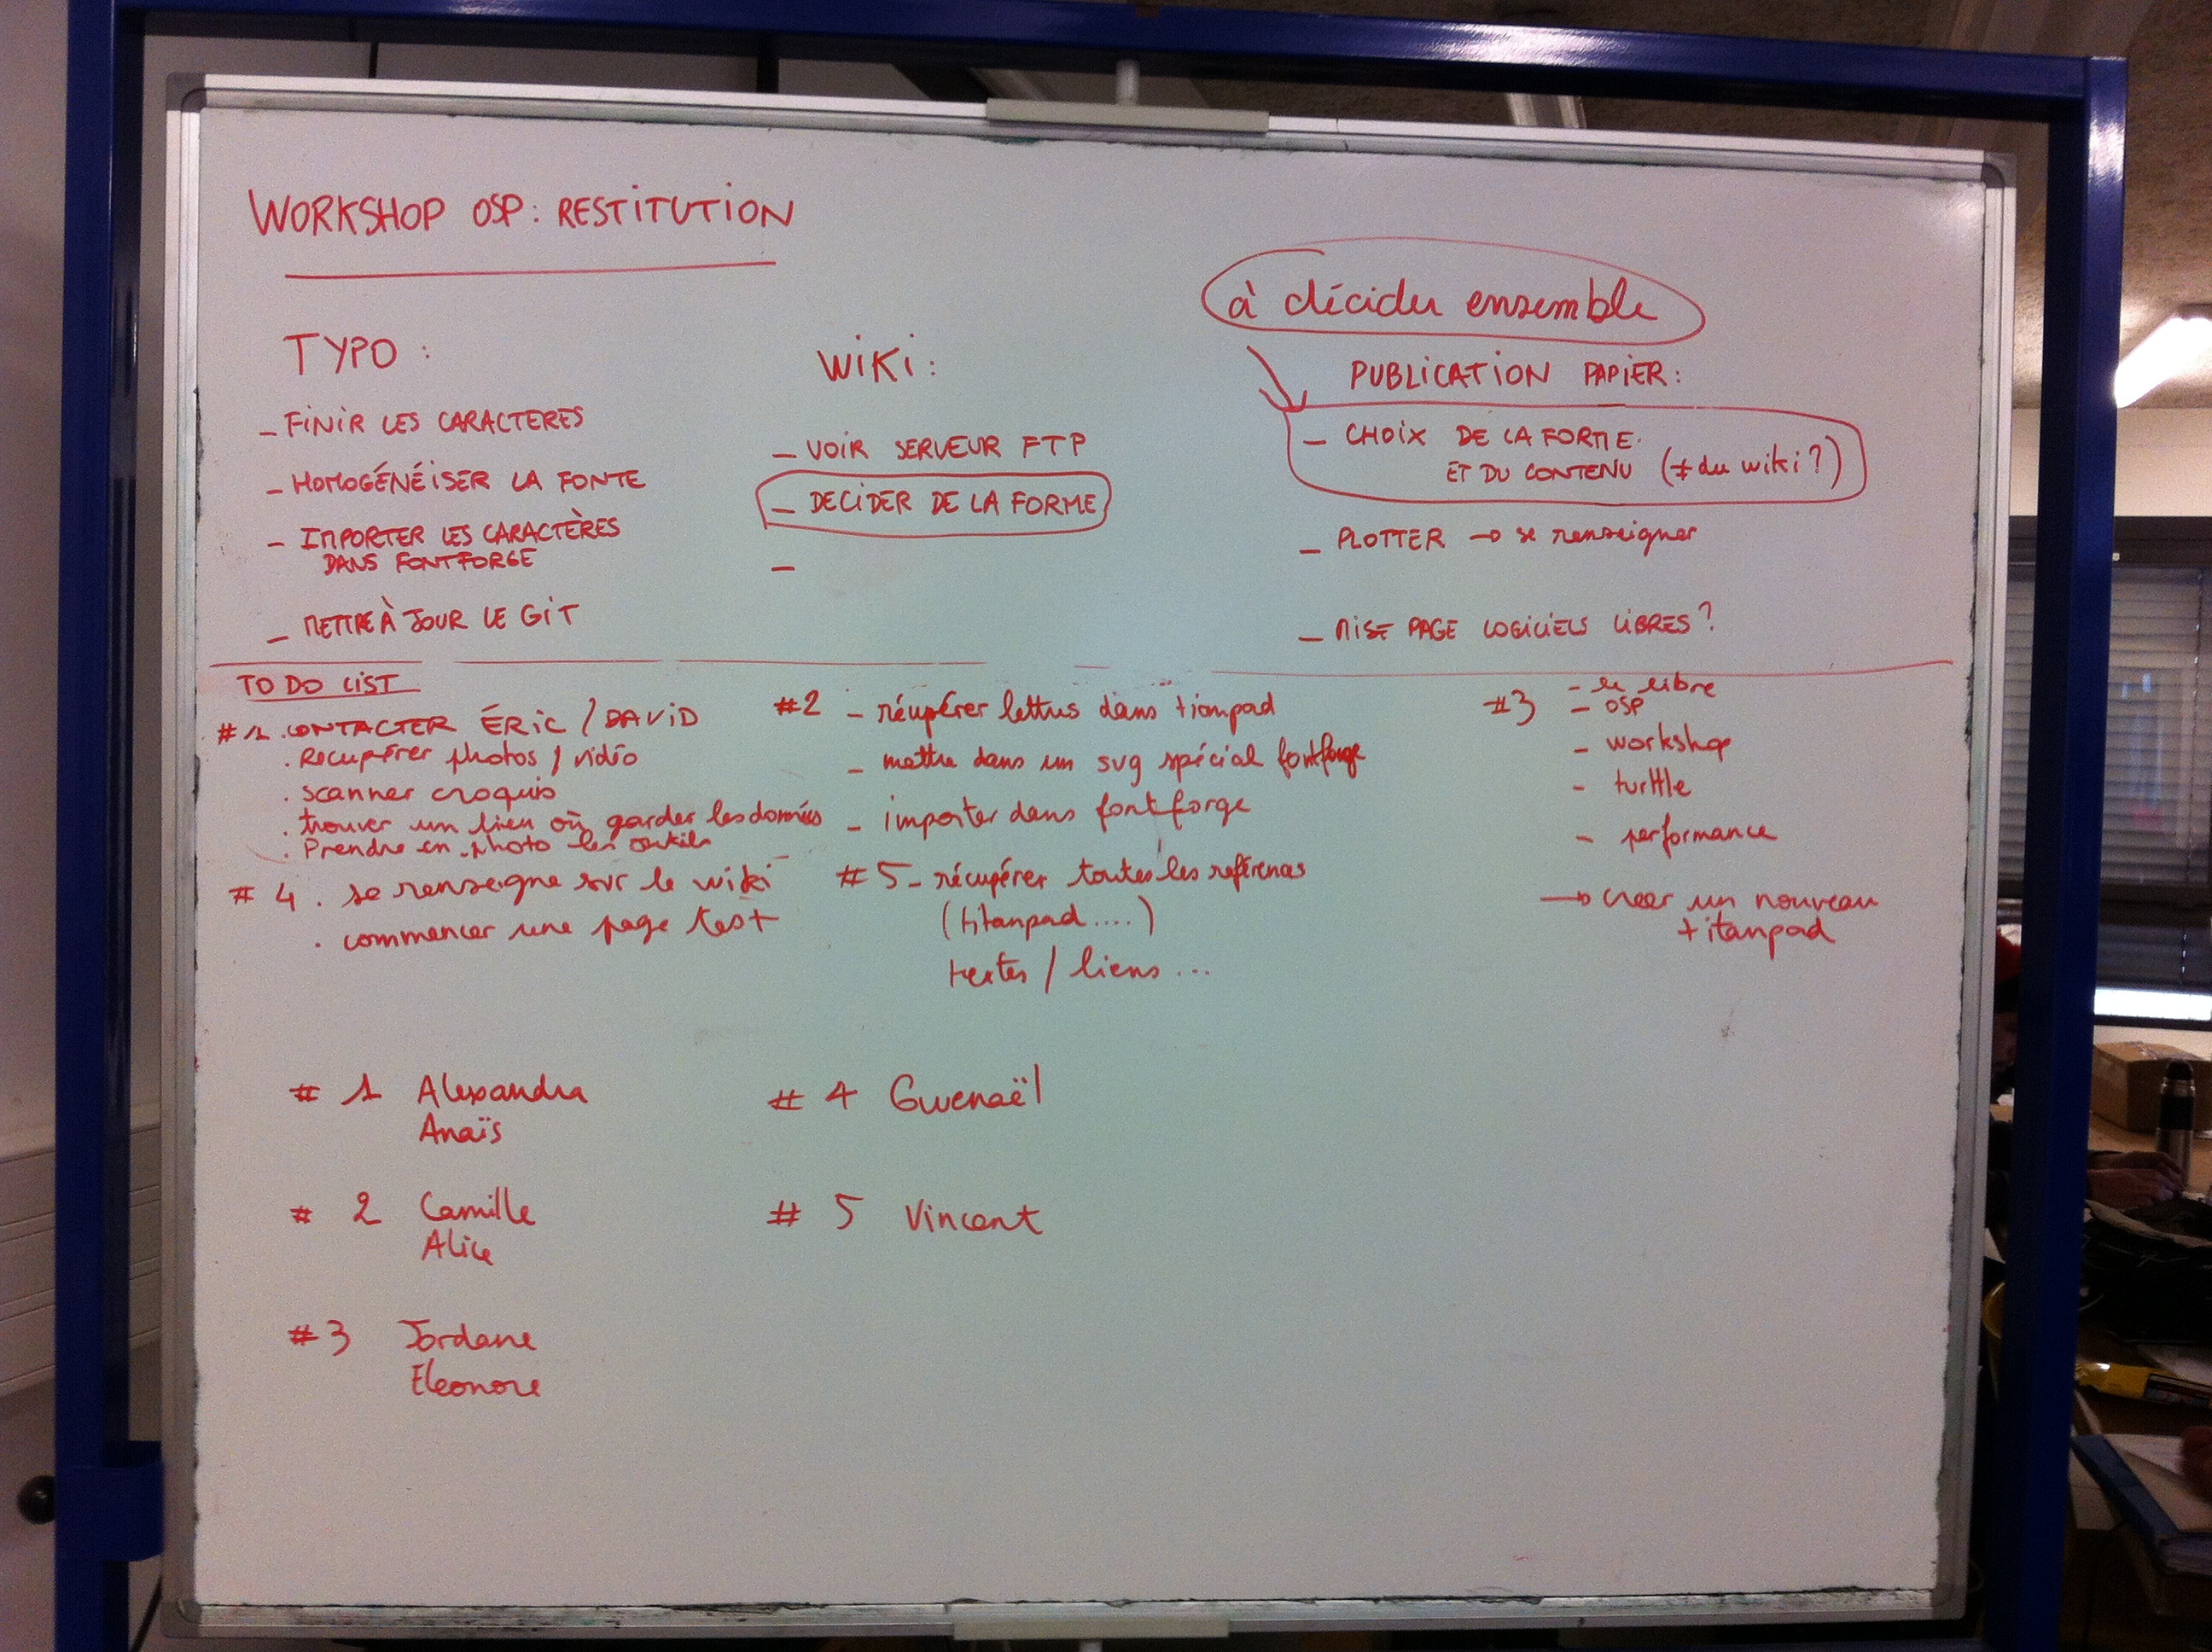 WORKSHOP OSP : RESTITUTION
TYPO :
– FINIR LES CARACTERES
– HOMOGÉNÉISER LA FONTE
– IMPORTER LES CARACTÈRES
DANS FONTFORGE
– METTRE À JOUR LE GIT
WIKI :
– VOIR SERVEUR FTP
– DECIDER DE LA FORME
–
à décider ensemble
PUBLICATION PAPIER :
– CHOIX DE LA FORME
ET DU CONTENU (≠ du wiki ?)
– PLOTTER → se renseigner
– MISE PAGE LOGICIELS LIBRES ?
TO DO LIST
# 1 . CONTACTER ÉRIC / DAVID
. Récupérer photos / vidéo
. scanner croquis
. trouver un lien où garder les données
. Prendre en photo les outils
# 4 . se renseigne sur le wiki
. commencer une page test
#2 – récupérer lettres dans tianpad
– mettre dans un svg spécial fontforge
– importer dans fontforge
# 5 – récupérer toutes les références
(titanpad ....)
textes / liens ...
#3 – le libre
– OSP
– workshop
– turttle
– performance
→ créer un nouveau
titanpad
# 1 Alexandra
Anaïs
# 2 Camille
Alice
#3 Jordane
Eleonore
# 4 Gwenaël
# 5 Vincent